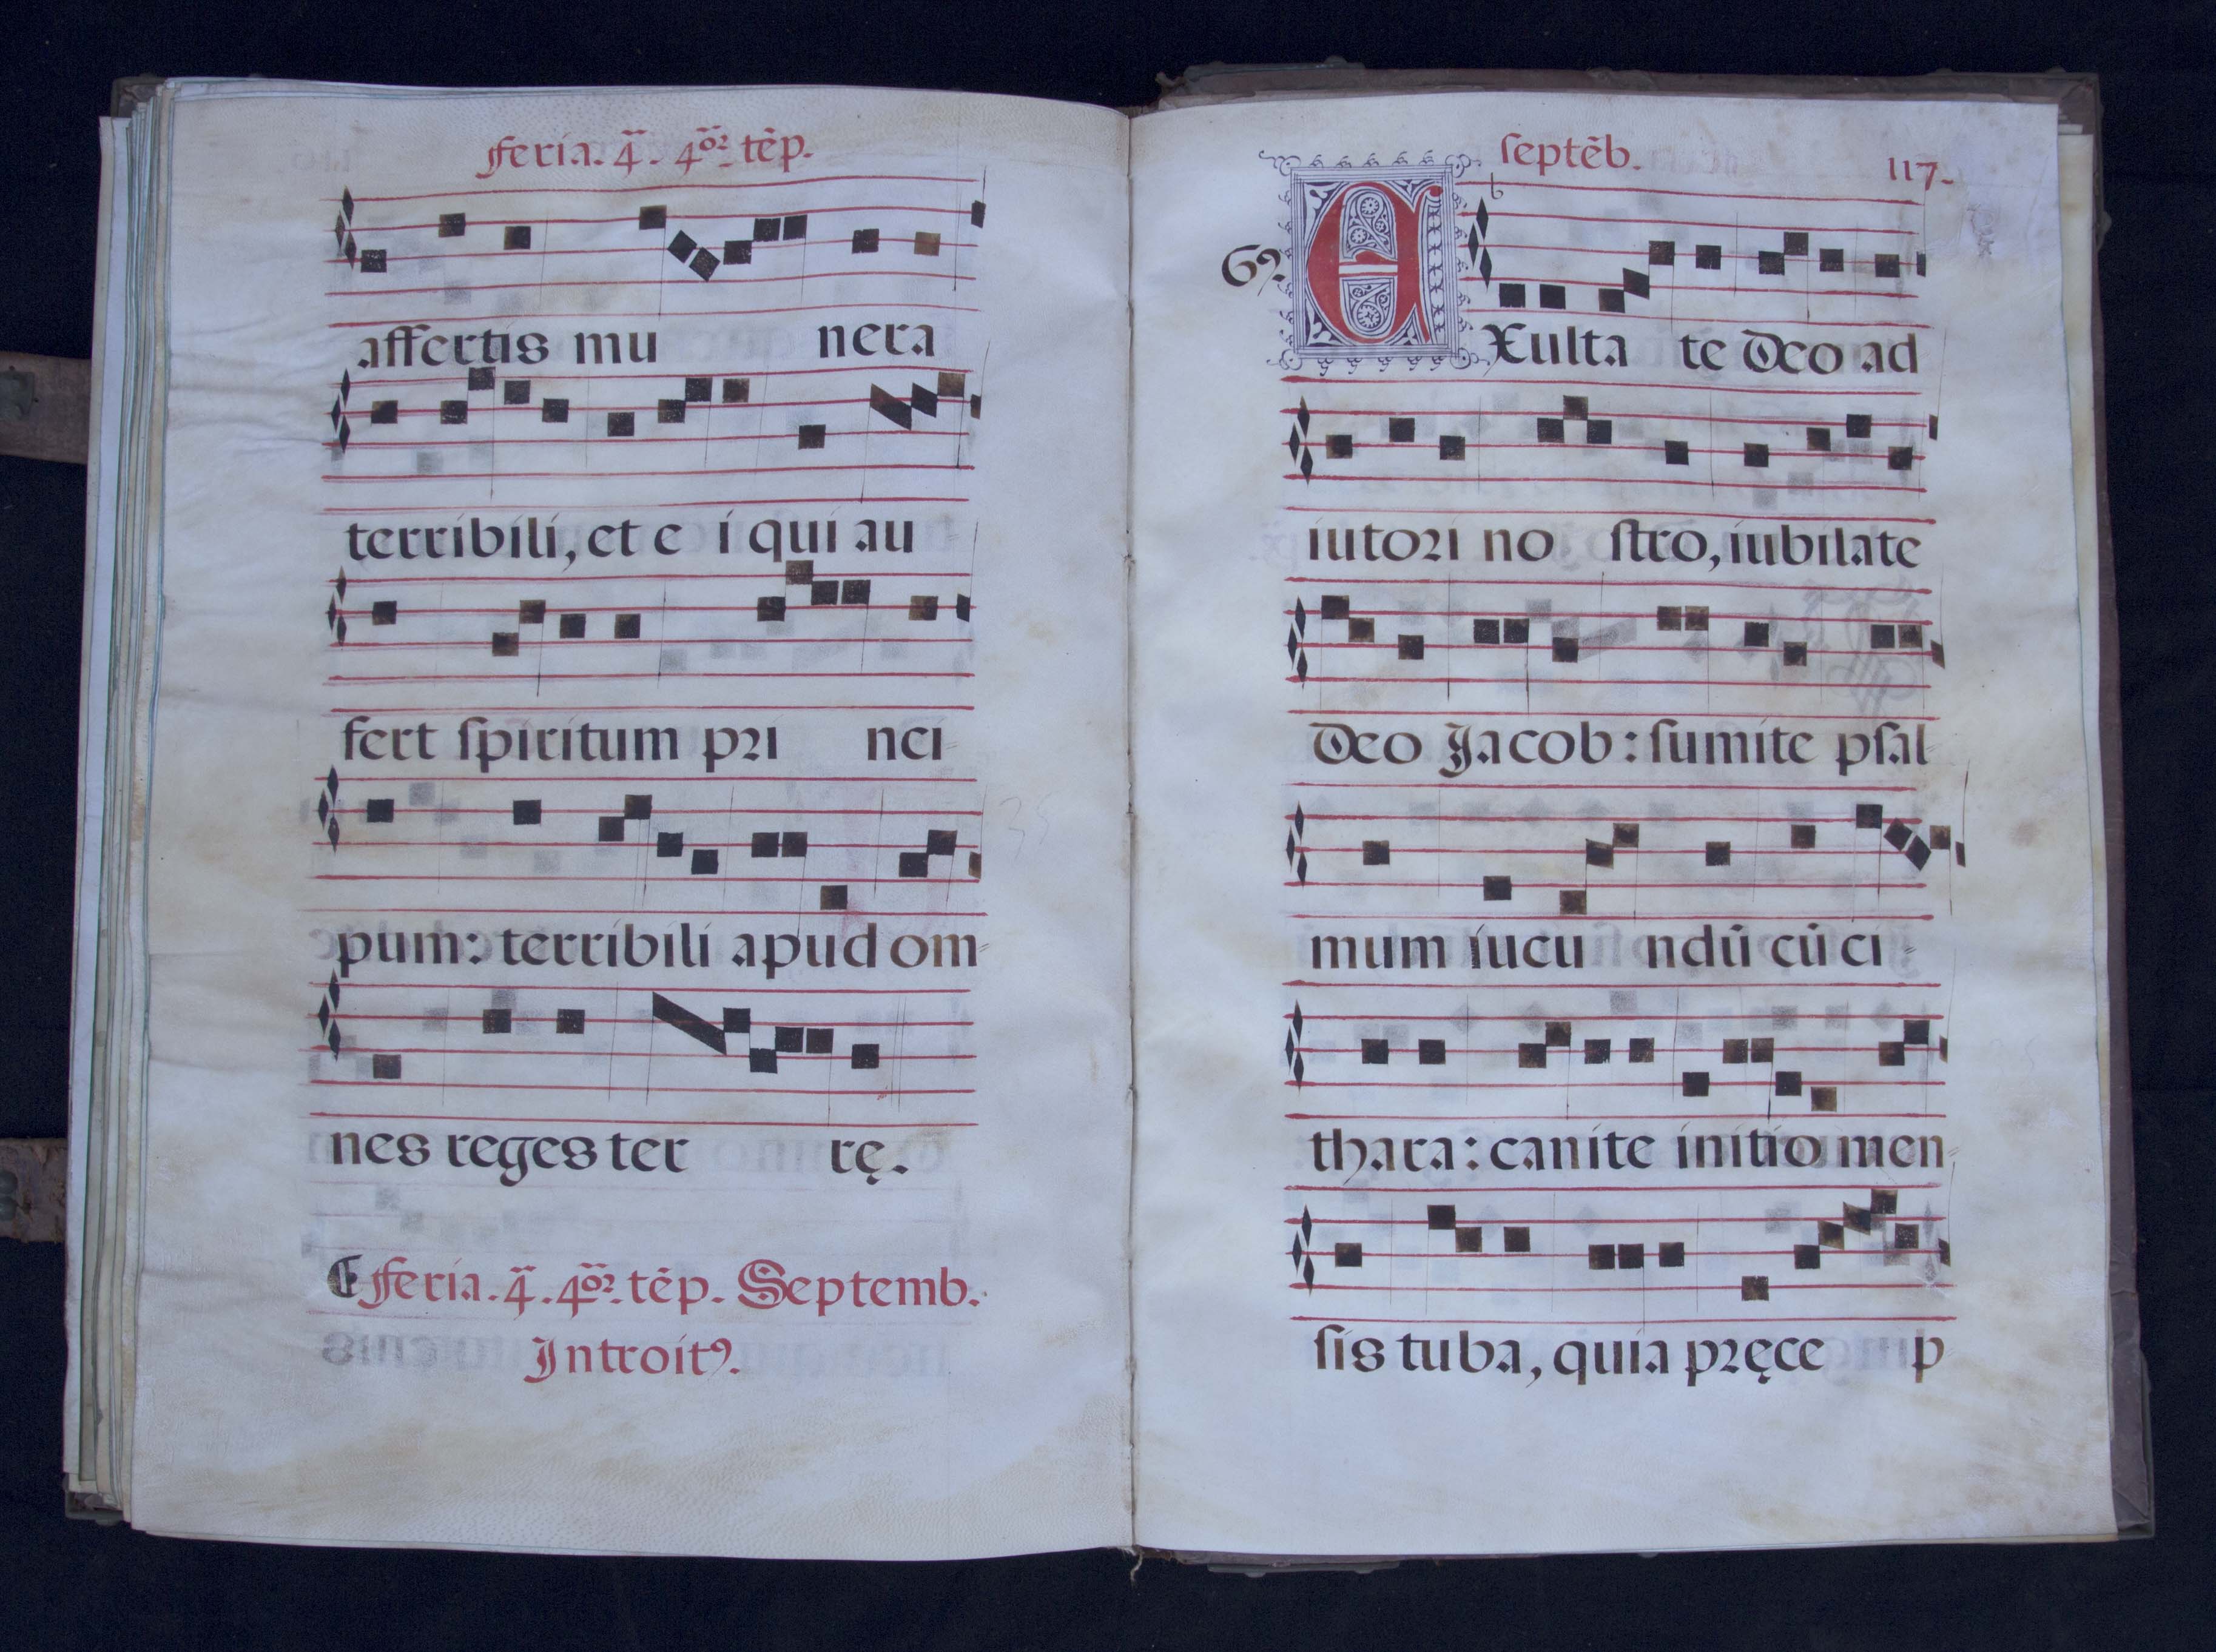 feria. 4ª. 4ºʳ tẽp.
affertis mu nera
terribili, et e i qui au
fert ſpiritum pꝛi nci=
pum: terribili apud om=
nes reges ter rę.
feria. 4ª. 4ºʳ. tẽp. Septemb.
Introitꝰ.
ſeptẽb. 117.
6ꝰ. EXulta te Deo ad
iutoꝛi no ſtro, iubilate
Deo Jacob: ſumite pſal=
mum iucu ndũ cũ ci=
thara: canite initio men=
ſis tuba, quia pꝛęce p